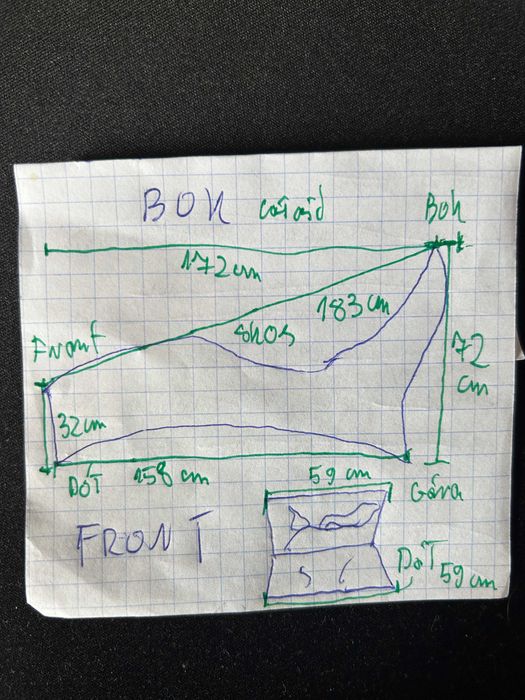 BOK całość Bok
172 cm
183 cm
skos
Front
72
cm
32 cm
DÓŁ 158 cm
59 cm
Góra
FRONT
DÓŁ 59 cm